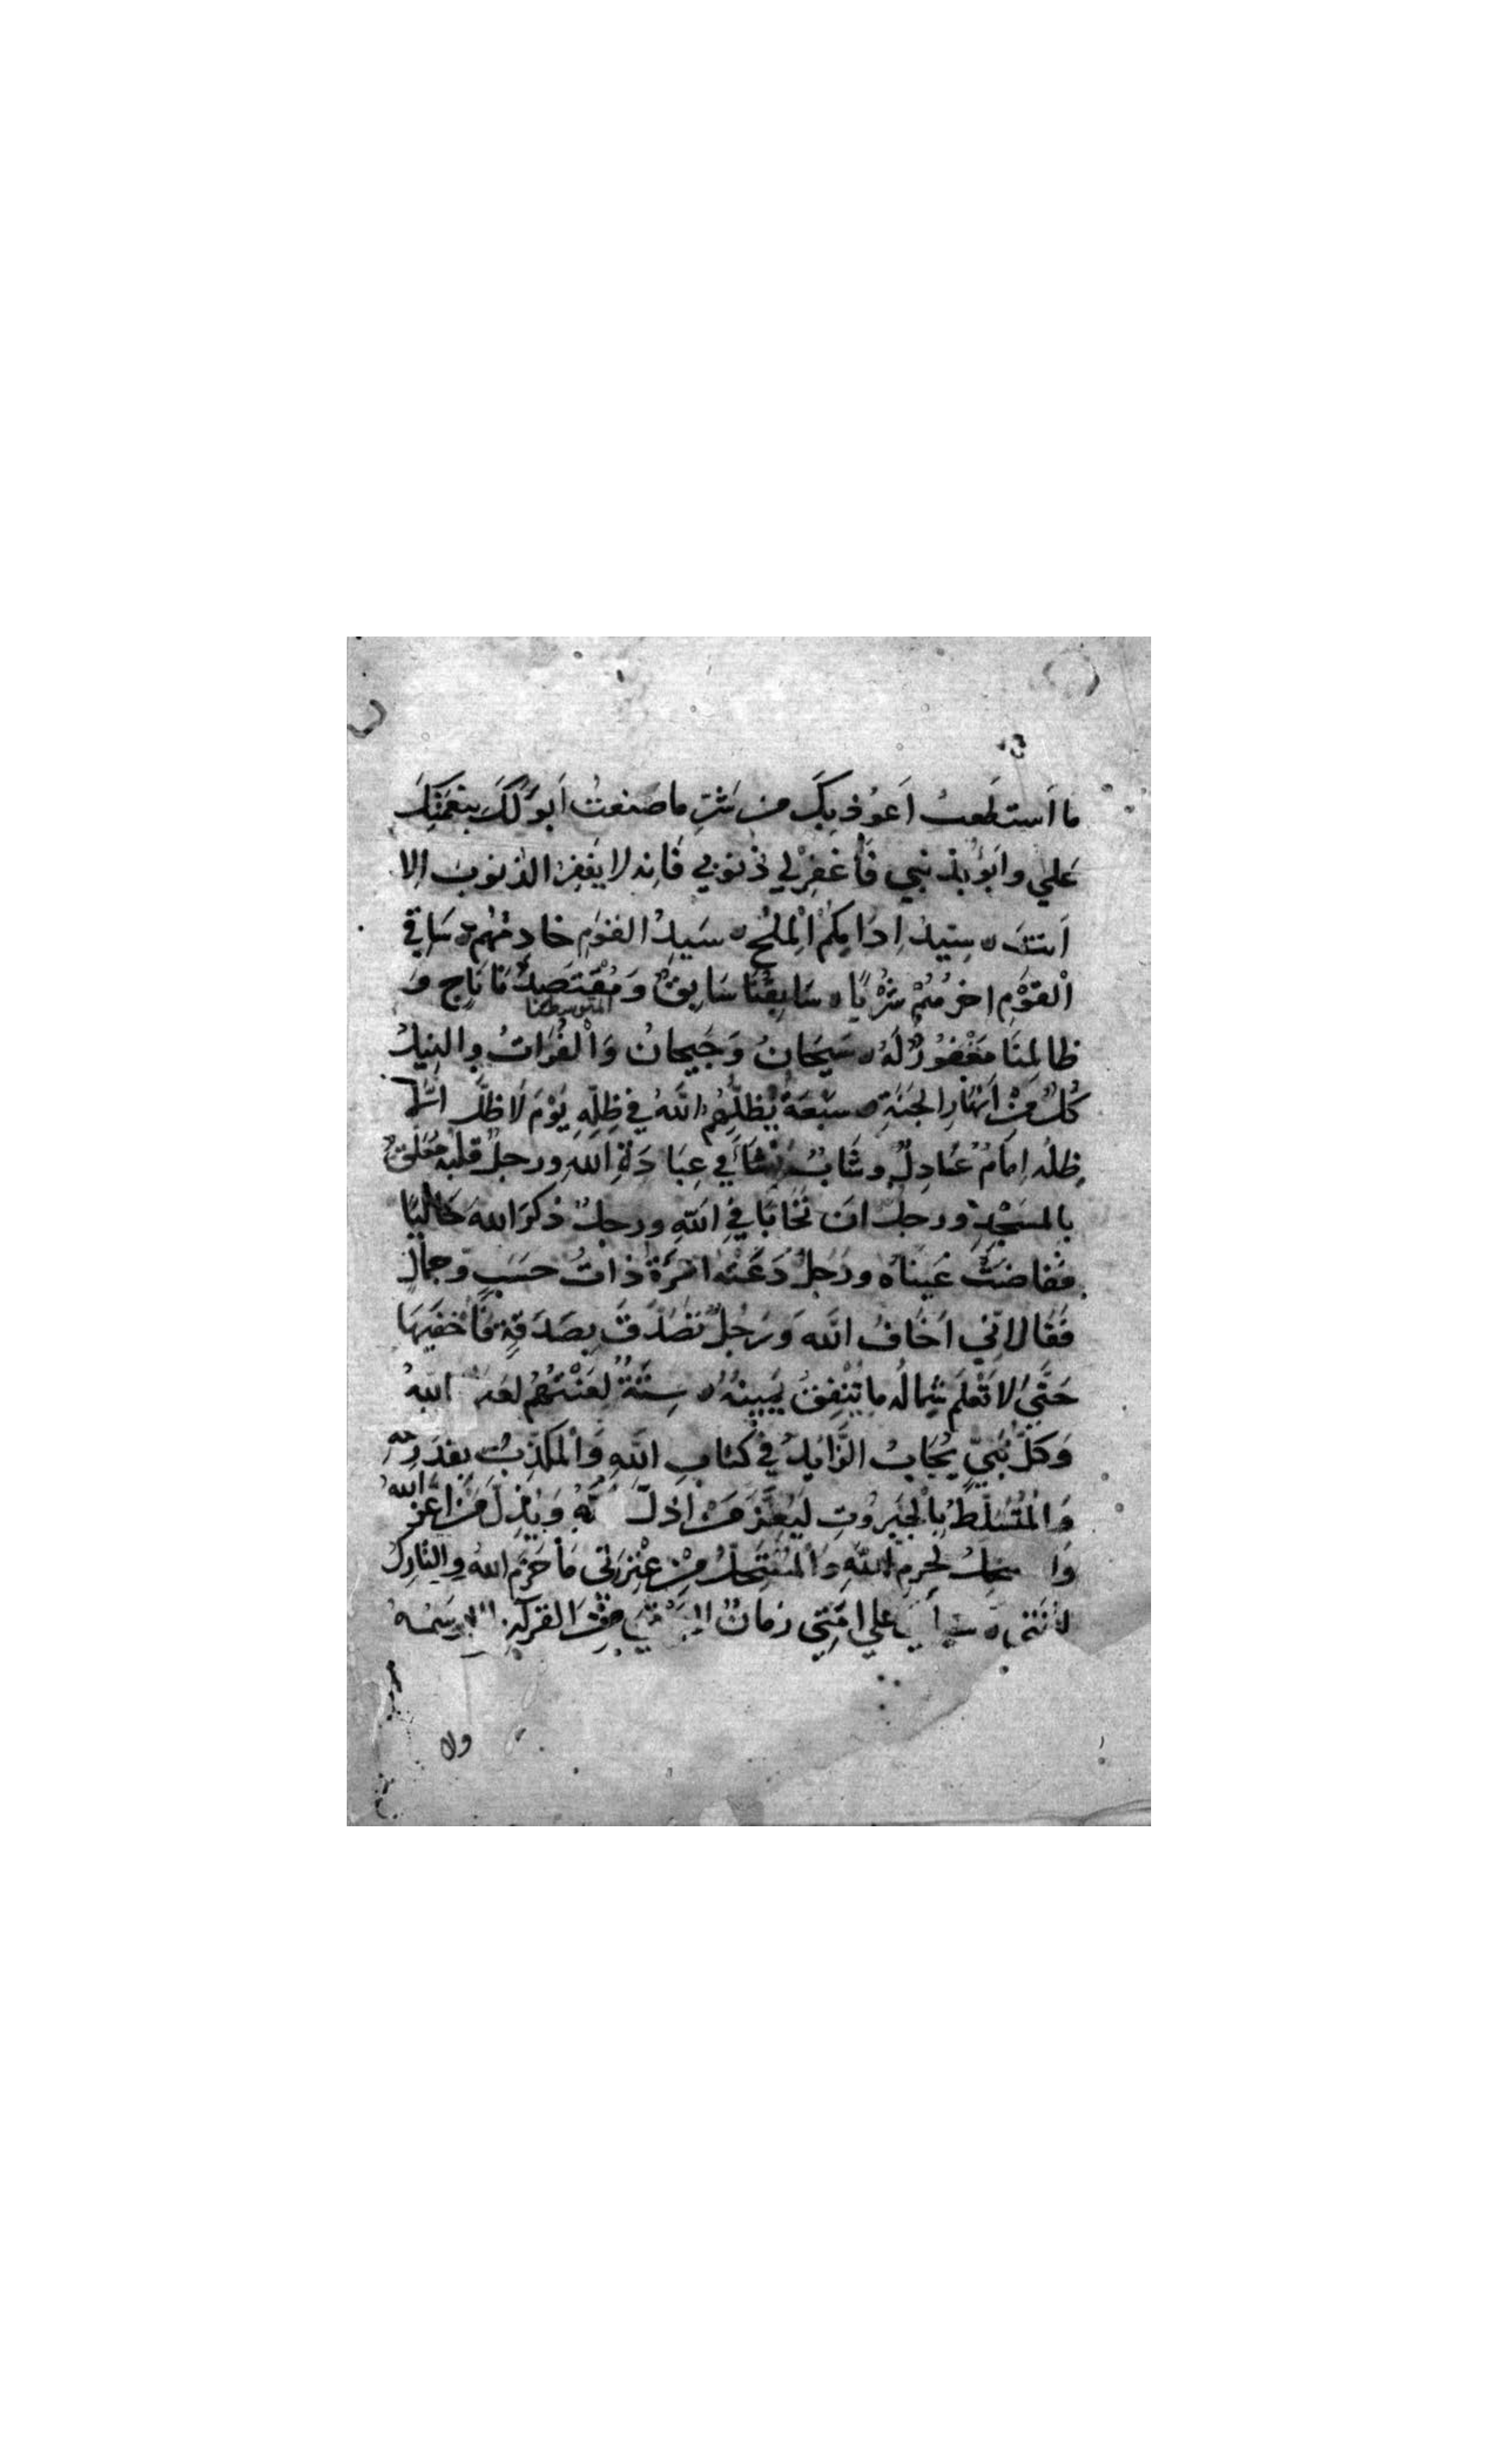 ما اَستطَعتُ اَعوُذ بِكَ من شَرِّ ما صَنعتُ اَبوُ لكَ بنِعمَتِكَ
عَلي وابَوُ بذنبي فَاغفِرْلي ذنوبي فَانه لا يَغفِرُ الذنوبَ اِلا
اَنتَ ه سيّدُ اِدَامِكُمُ الْمِلحُ ه سَيدُ القوَمِ خادمُهُم ه سَاقي
الْقَوْمِ اخرهُمْ شُرْبًا ه سَابِقُنَا سَابِقٌ وَمُقْتَصِدُنَا نَاجٍ وَ
المتوسطنا
ظالِمنَا مَغْفوُرٌ لَهُ ه سَيَحَانُ وَجَيحانُ وَالْفُرَاتُ والنِيلُ
كُلٌ مِنْ اَنهَارِ الجَنَةِ ه سَبْعَةٌ يُظلُّهُم اللهُ في ظِلِّهِ يَوْمَ لَا ظلَّ الّا
ظِلُه اِمَامٌ عَادِلٌ وشَابٌ نشَأَ في عِبَادَةِ اللهِ ورجلٌ قلبُه مُعَلقٌ
بالمسَجْدِ ورجلَانِ تَحَابَا فِي اللهِ ورجلٌ ذكرَ اللهَ خَاليًا
ففَاضتْ عَينَاهُ ورَجلٌ دَعَته امْرَةٌ ذاتُ حسَبٍ وجمالٍ
فَقَالَ اِنّي اَخَافُ اللهَ وَرَجُلٌ تَصَدّقَ بصَدَقةٍ فَاَخفَيهَا
حَتَّي لا تَعْلَم شِمالُه ما تنْفِقُ يَمينُهُ ه سِتّةٌ لعَنْتُهُمْ لعَنَ اللهُ
وَكلُّ نَبيٍّ يُجَابُ الزَّايدُ في كتابِ اللهِ وَالمُكذِّبُ بقدَرِ
وَالْمُتَسلّطُ بِالْجَبرُوتِ ليُعِزَّ مَنْ اذلَّ اللهُ وَيُذِلَّ مَنْ اعزَّ اللهُ
لِحُرِمِ اللهِ وَالْمُسْتَحِلُّ مِنْ عِتْرتي مَا حَرّمَ اللهُ والتَّارِكُ
لسُنّتي ه على امّتي زمانٌ من القرآن الا رسمُه
ولا